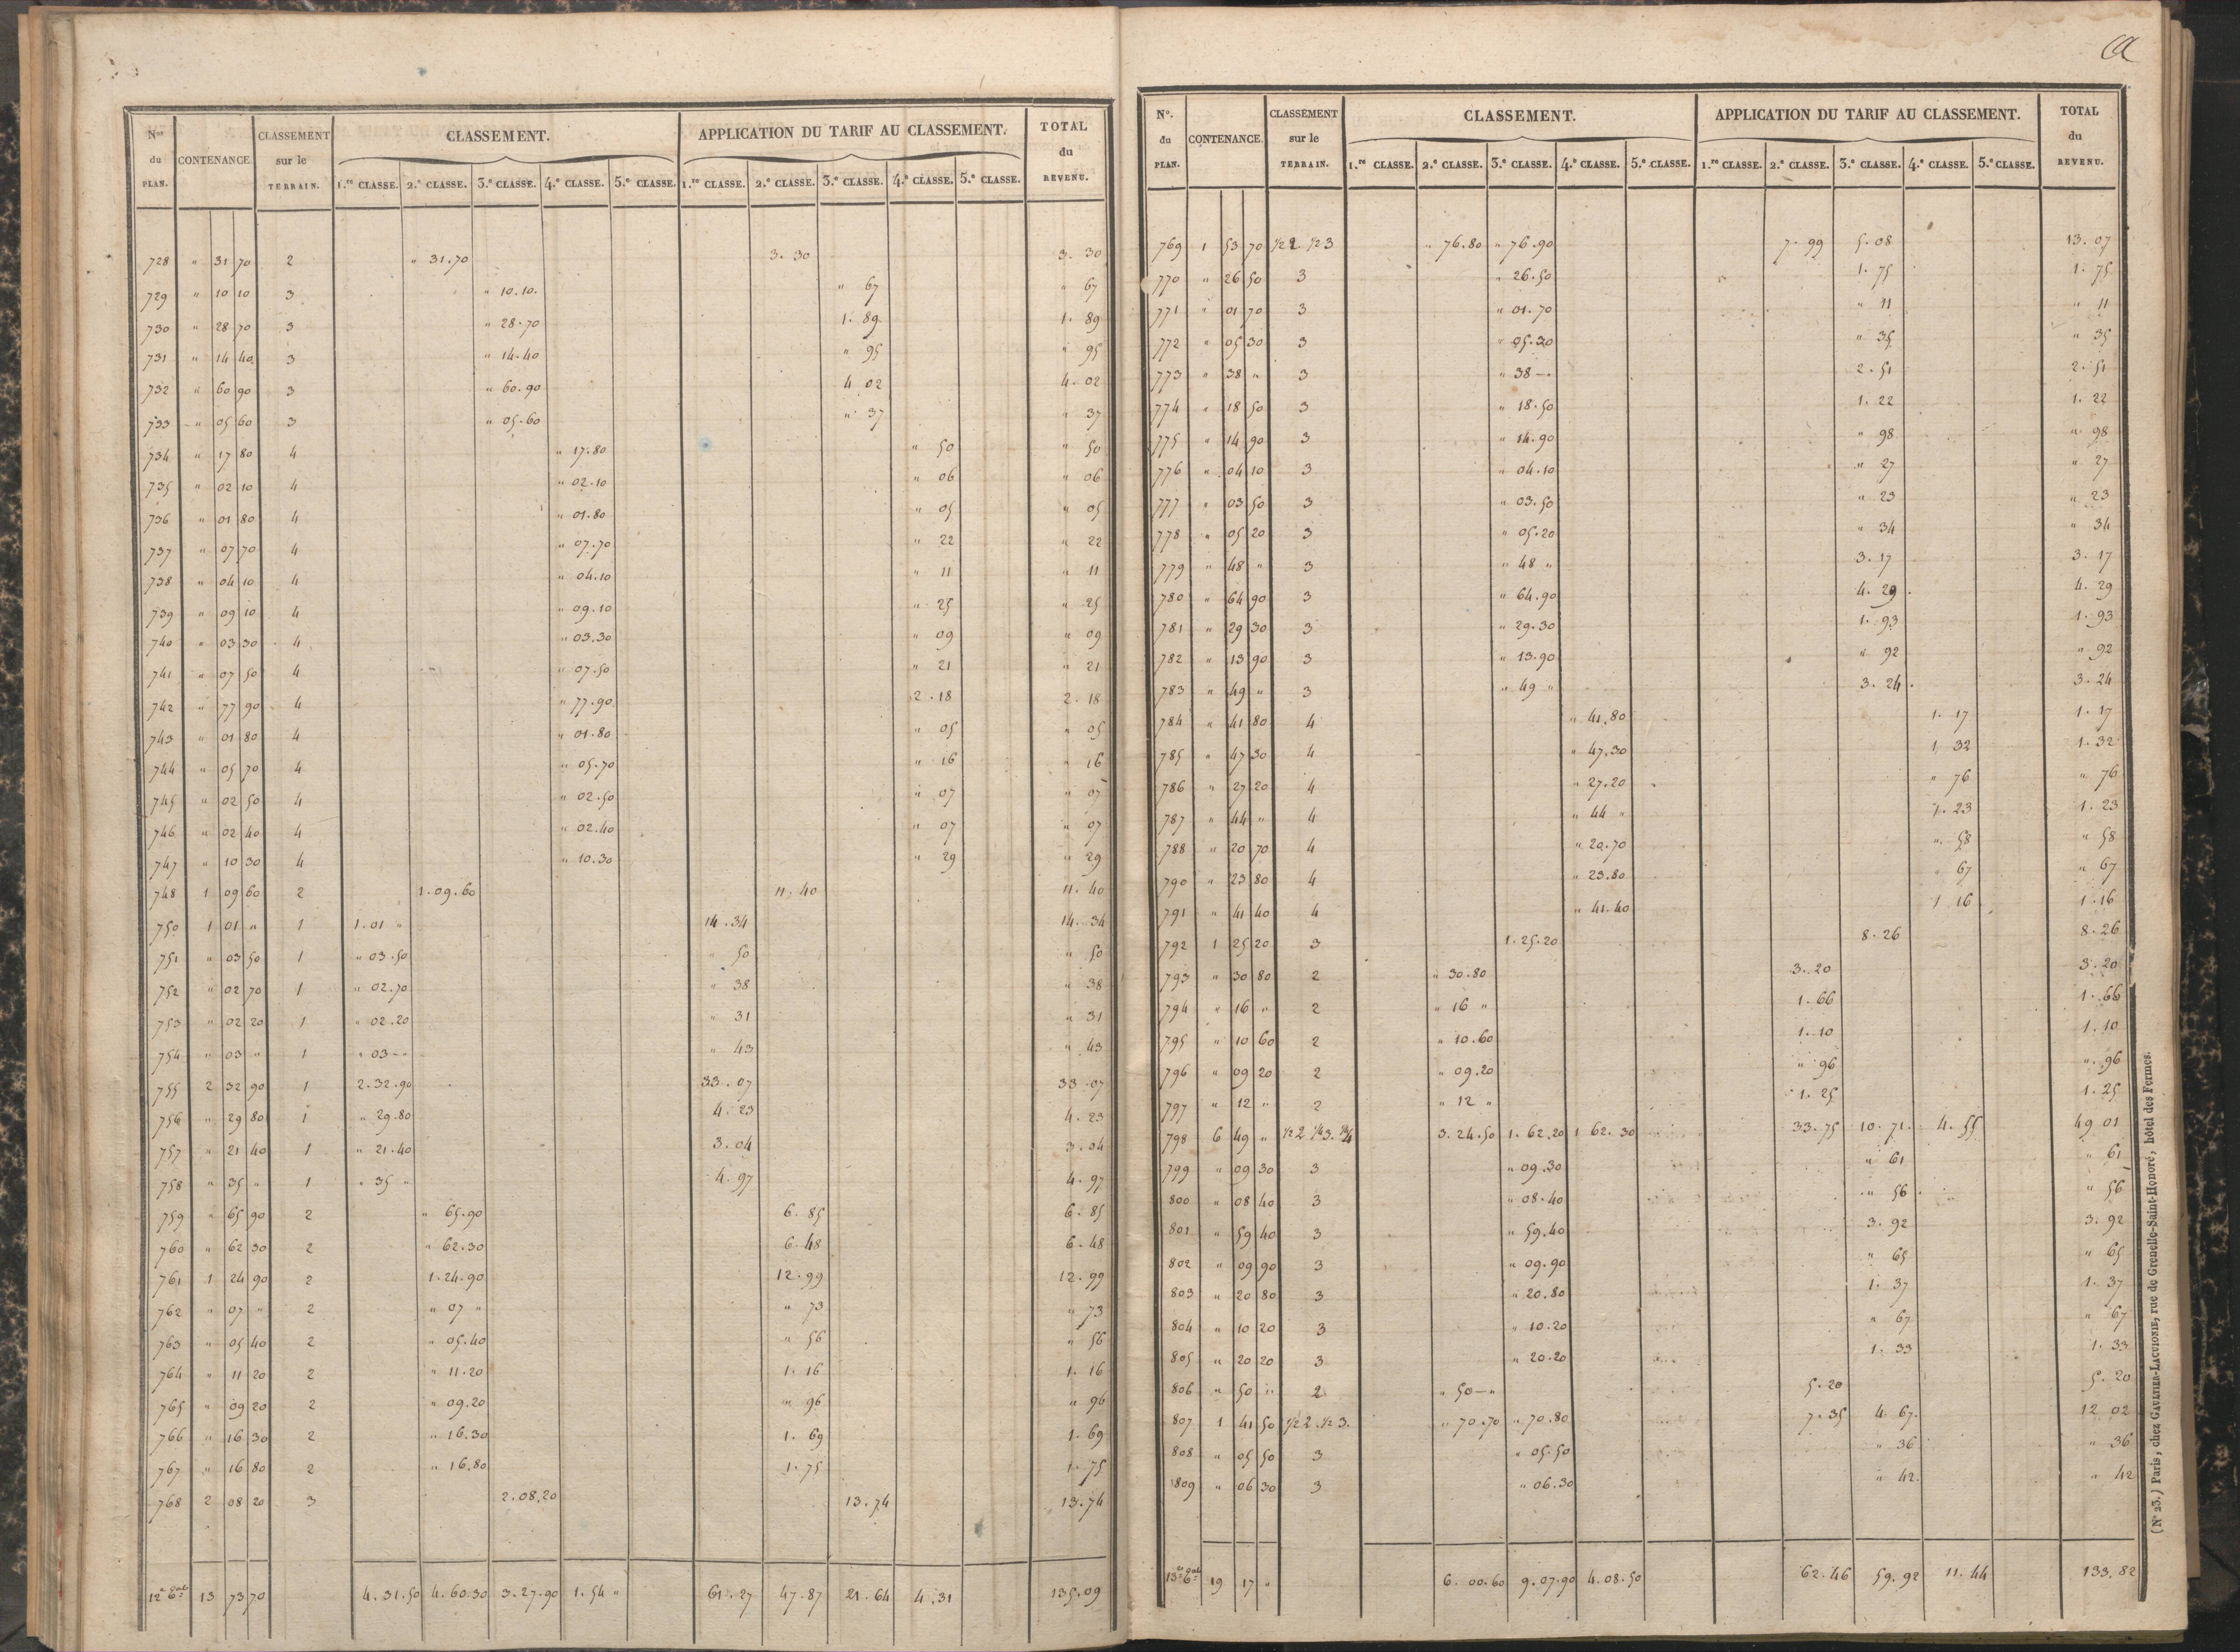 a
Nos du PLAN. CONTENANCE. CLASSEMENT sur le TERRAIN. CLASSEMENT. APPLICATION DU TARIF AU CLASSEMENT. TOTAL du REVENU.
1.re CLASSE. 2.e CLASSE. 3.e CLASSE. 4.e CLASSE. 5.e CLASSE. 1.re CLASSE. 2.e CLASSE. 3.e CLASSE. 4.e CLASSE. 5.e CLASSE.
728 " 31 70 2 " 31.70 3. 30 3. 30
729 " 10 10 3 " 10.10. " 67 " 67
730 " 28 70 3 " 28.70 1. 89 1. 89
731 " 14 40 3 " 14.40 " 95 " 95
732 " 60 90 3 " 60.90 4 02 4. 02
733 " 05 60 3 " 05.60 " 37 " 37
734 " 17 80 4 " 17.80 " 50 " 50
735 " 02 10 4 " 02.10 " 06 " 06
736 " 01 80 4 " 01.80 " 05 " 05
737 " 07 70 4 " 07.70 " 22 " 22
738 " 04 10 4 " 04.10 " 11 " 11
739 " 09 10 4 " 09.10 " 25 " 25
740 " 03 30 4 " 03.30 " 09 " 09
741 " 07 50 4 " 07.50 " 21 " 21
742 " 77 90 4 " 77.90 2.18 2.18
743 " 01 80 4 " 01.80 " 05 " 05
744 " 05 70 4 " 05.70 " 16 " 16
745 " 02 50 4 " 02.50 " 07 " 07
746 " 02 40 4 " 02.40 " 07 " 07
747 " 10 30 4 " 10.30 " 29 " 29
748 1 09 60 2 1.09.60 11. 40 11. 40
750 1 01 " 1 1.01 " 14.34 14. 34
751 " 03 50 1 " 03.50 " 50 " 50
752 " 02 70 1 " 02.70 " 38 " 38
753 " 02 20 1 " 02.20 " 31 " 31
754 " 03 " 1 " 03 -- " 43 " 43
755 2 32 90 1 2.32.90 33. 07 33.07
756 " 29 80 1 " 29.80 4. 23 4. 23
757 " 21 40 1 " 21.40 3. 04 3.04
758 " 35 " 1 " 35 " 4. 97 4. 97
759 " 65 90 2 " 65.90 6. 85 6. 85
760 " 62 30 2 " 62.30 6.48 6.48
761 1 24 90 2 1.24.90 12.99 12.99
762 " 07 " 2 " 07 " " 73 " 73
763 " 05 40 2 " 05.40 " 56 " 56
764 " 11 20 2 " 11.20 1. 16 1. 16
765 " 09 20 2 " 09.20 " 96 " 96
766 " 16 30 2 " 16.30 1. 69 1. 69
767 " 16 80 2 " 16.80 1. 75 1. 75
768 2 08 20 3 2.08.20 13.74 13.74
13 73 70 4.31.50 4.60.30 3.27.90 1.54 " 61.27 47.87 21.64 4.31 135.09
No. du PLAN. CONTENANCE. CLASSEMENT sur le TERRAIN. CLASSEMENT. APPLICATION DU TARIF AU CLASSEMENT. TOTAL du REVENU.
1.re CLASSE. 2.e CLASSE. 3.e CLASSE. 4.e CLASSE. 5.e CLASSE. 1.re CLASSE. 2.e CLASSE. 3.e CLASSE. 4.e CLASSE. 5.e CLASSE.
769 1 53 70 1/2 2. 1/2 3 " 76.80 " 76.90 7. 99 5.08 13.07
770 " 26 50 3 " 26.50 1. 75 1. 75
771 " 01 70 3 " 01.70 " 11 " 11
772 " 05 30 3 " 05.30 " 35 " 35
773 " 38 " 3 " 38 -. 2.51 2.51
774 " 18 50 3 " 18.50 1. 22 1. 22
775 " 14 90 3 " 14.90 " 98 " 98
776 " 04 10 3 " 04.10 " 27 " 27
777 " 03 50 3 " 03.50 " 23 " 23
778 " 05 20 3 " 05.20 " 34 " 34
779 " 48 " 3 " 48 " 3. 17 3. 17
780 " 64 90 3 " 64.90 4. 29 4. 29
781 " 29 30 3 " 29.30 1. 93 1. 93
782 " 13 90 3 " 13.90 " 92 " 92
783 " 49 " 3 " 49 " 3. 24 3. 24
784 " 41 80 4 " 41.80 1. 17 1. 17
785 " 47 30 4 " 47.30 1. 32 1. 32
786 " 27 20 4 " 27.20 " 76 " 76
787 " 44 " 4 " 44 " 1. 23 1. 23
788 " 20 70 4 " 20.70 " 58 " 58
790 " 23 80 4 " 23.80 " 67 " 67
791 " 41 40 4 " 41.40 1 16 1.16
792 1 25 20 3 1.25.20 8.26 8.26
793 " 30 80 2 " 30.80 3. 20 3.20
794 " 16 " 2 " 16 " 1. 66 1. 66
795 " 10 60 2 " 10.60 1. 10 1.10
796 " 09 20 2 " 09.20 " 96 " 96
797 " 12 " 2 " 12 " 1. 25 1.25
798 6 49 " 1/2 2 1/4 3. 1/4 4 3.24.50 1.62.20 1 62.30 33.75 10.71. 4.55 49 01
799 " 09 30 3 " 09.30 " 61 " 61
800 " 08 40 3 " 08.40 " 56 " 56
801 " 59 40 3 " 59.40 3. 92 3. 92
802 " 09 90 3 " 09.90 " 65 " 65
803 " 20 80 3 " 20.80 1. 37 1. 37
804 " 10 20 3 " 10.20 " 67 " 67
805 " 20 20 3 " 20.20 1. 33 1. 33
806 " 50 " 2 " 50 -" 5.20 5. 20
807 1 41 50 1/2 2. 1/2 3. " 70.70 " 70.80 7.35 4 67. 12 02
808 " 05 50 3 " 05.50 " 36 " 36
809 " 06 30 3 " 06.30 " 42. " 42
19 17 " 6.00.60 9.07.90 4.08.50 62.46 59.92 11.44 133.82
(N° 23.) Paris, chez GAULTIER-LAGUIONIE, rue de Grenelle-Saint-Honoré, hôtel des Fermes.